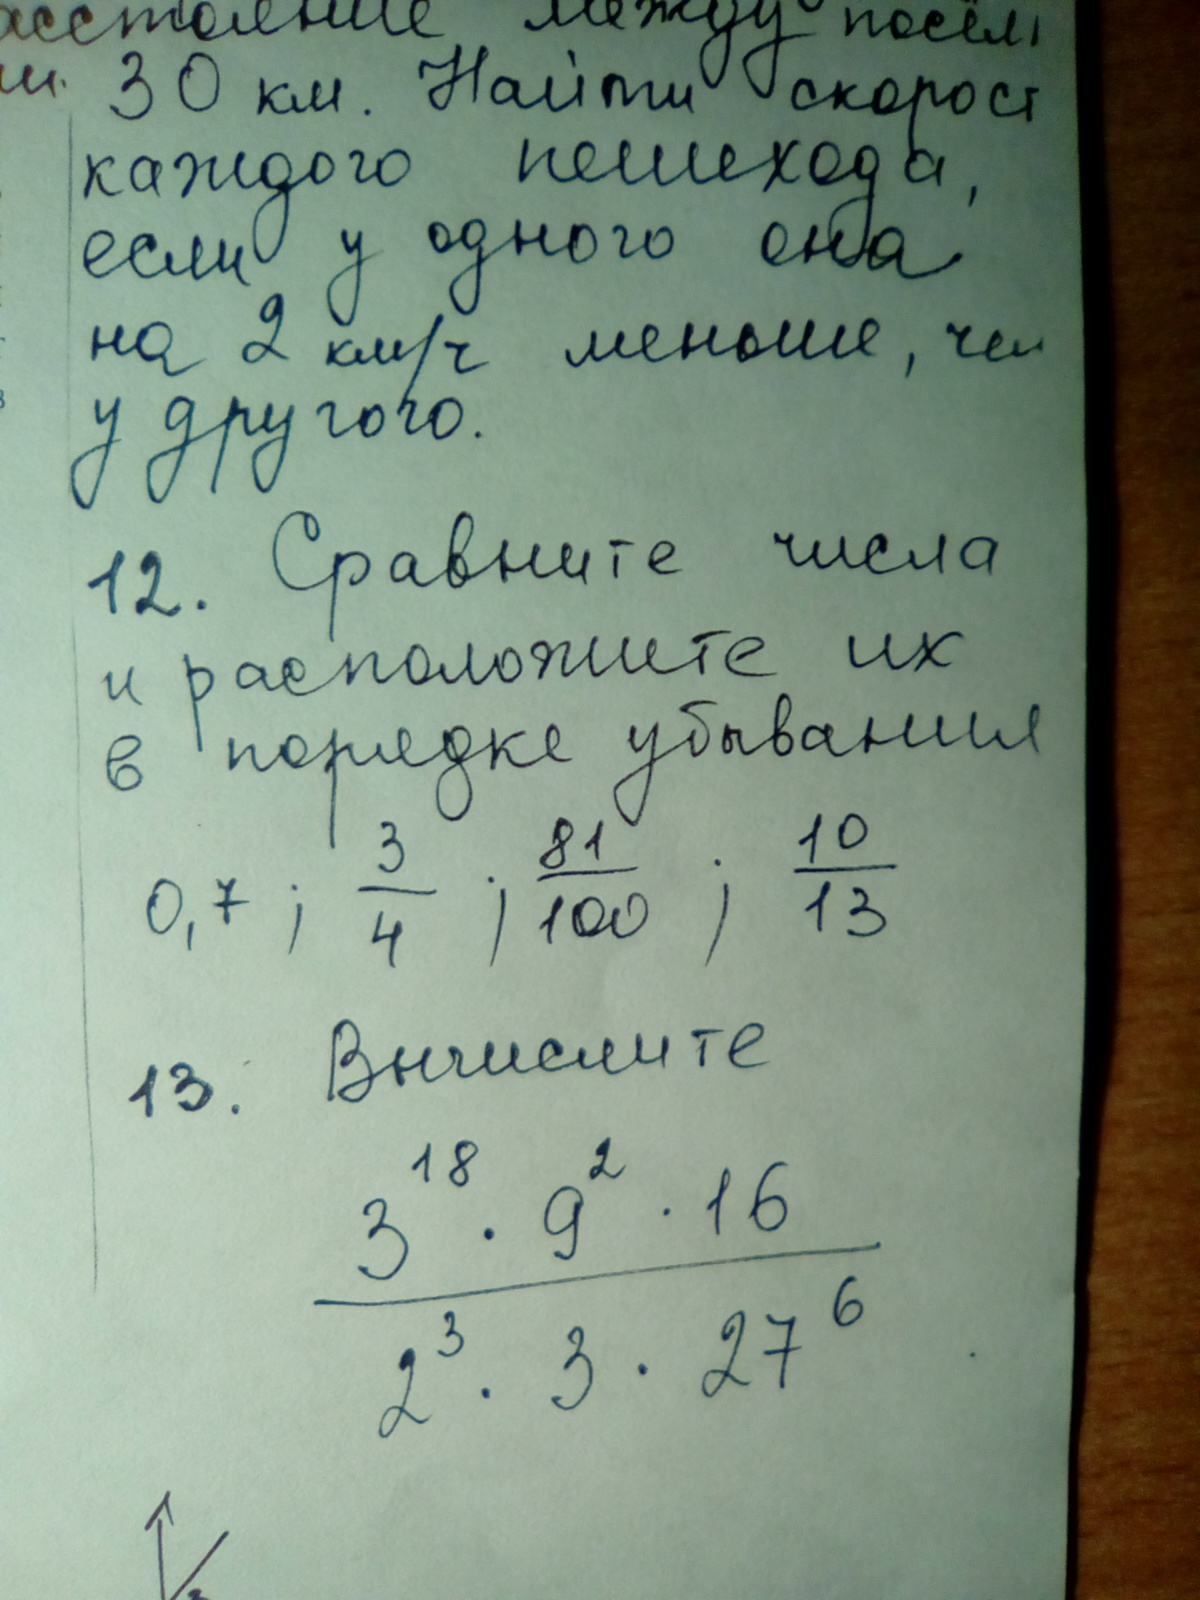 расстояние между посёл
ми 30 км. Найти скорост
каждого пешехода,
если у одного она
на 2 км/ч меньше, чем
у другого.
12. Сравните числа
и расположите их
в порядке убывания
0,7 ; 3/4 ; 81/100 ; 10/13
13. Вычислите
3^18 · 9^2 · 16
2^3 · 3 · 27^6